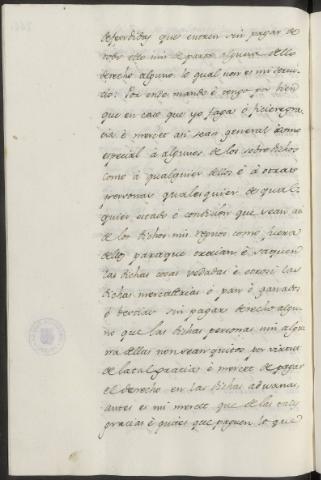 defendidas que entren sin pagar de
todo ello nin de parte alguna dello
derecho alguno lo qual non es mi servi-
cio: Por ende mando è tengo por bien
que en caso que yo faga ò ficiere gra-
cia è mercet asi seas general como
especial à algunos de los sobredichos
como à qualquier dellos è à otras
personas qualesquier de qual-
quier estado è condicion que sean asi
de los dichos mis regnos como fuera
dellos para que metan è saquen
las dichas cosas vedadas è otrosi las
dichas mercaderias ò pan è ganados
è bestias sin pagar derecho algu-
no que las dichas personas nin algu-
na dellas non sean quitos por virtud
de la tal gracia è mercet de pagar
el derecho en las dichas aduanas,
antes es mi mercet que de las tales
gracias è quitas que paguen lo que